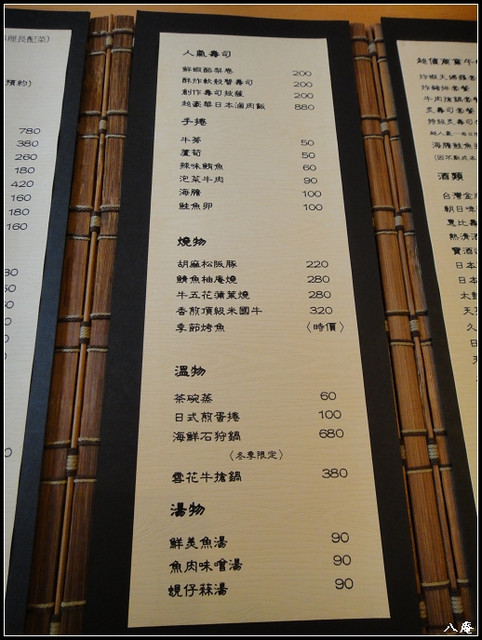 理長配菜)
預約)
780
380
260
180
420
160
180
160
人氣壽司
鮮蝦酪梨卷 200
酥炸軟殼蟹壽司 200
創作壽司披薩 200
超豪華日本滷肉飯 880
手捲
牛蒡 50
蘆筍 50
辣味鮪魚 60
泡菜牛肉 90
海膽 100
鮭魚卵 100
燒物
胡麻松阪豚 220
鯖魚柚庵燒 280
牛五花蒲葉燒 280
香煎頂級米國牛 320
季節烤魚 〈時價〉
溫物
茶碗蒸 60
日式煎蛋捲 100
海鮮石狩鍋 680
〈冬季限定〉
雪花牛搶鍋 380
湯物
鮮美魚湯 90
魚肉味噌湯 90
蜆仔蒜湯 90
超值商業午
炒蝦天婦羅套
炸豬排套餐
牛肉搶鍋套餐
炙壽司套餐
海膽鮭魚
酒類
台灣金
朝日啤
惠比壽
熱清酒
寶酒
日本
日本
太
天
久
天
八庵